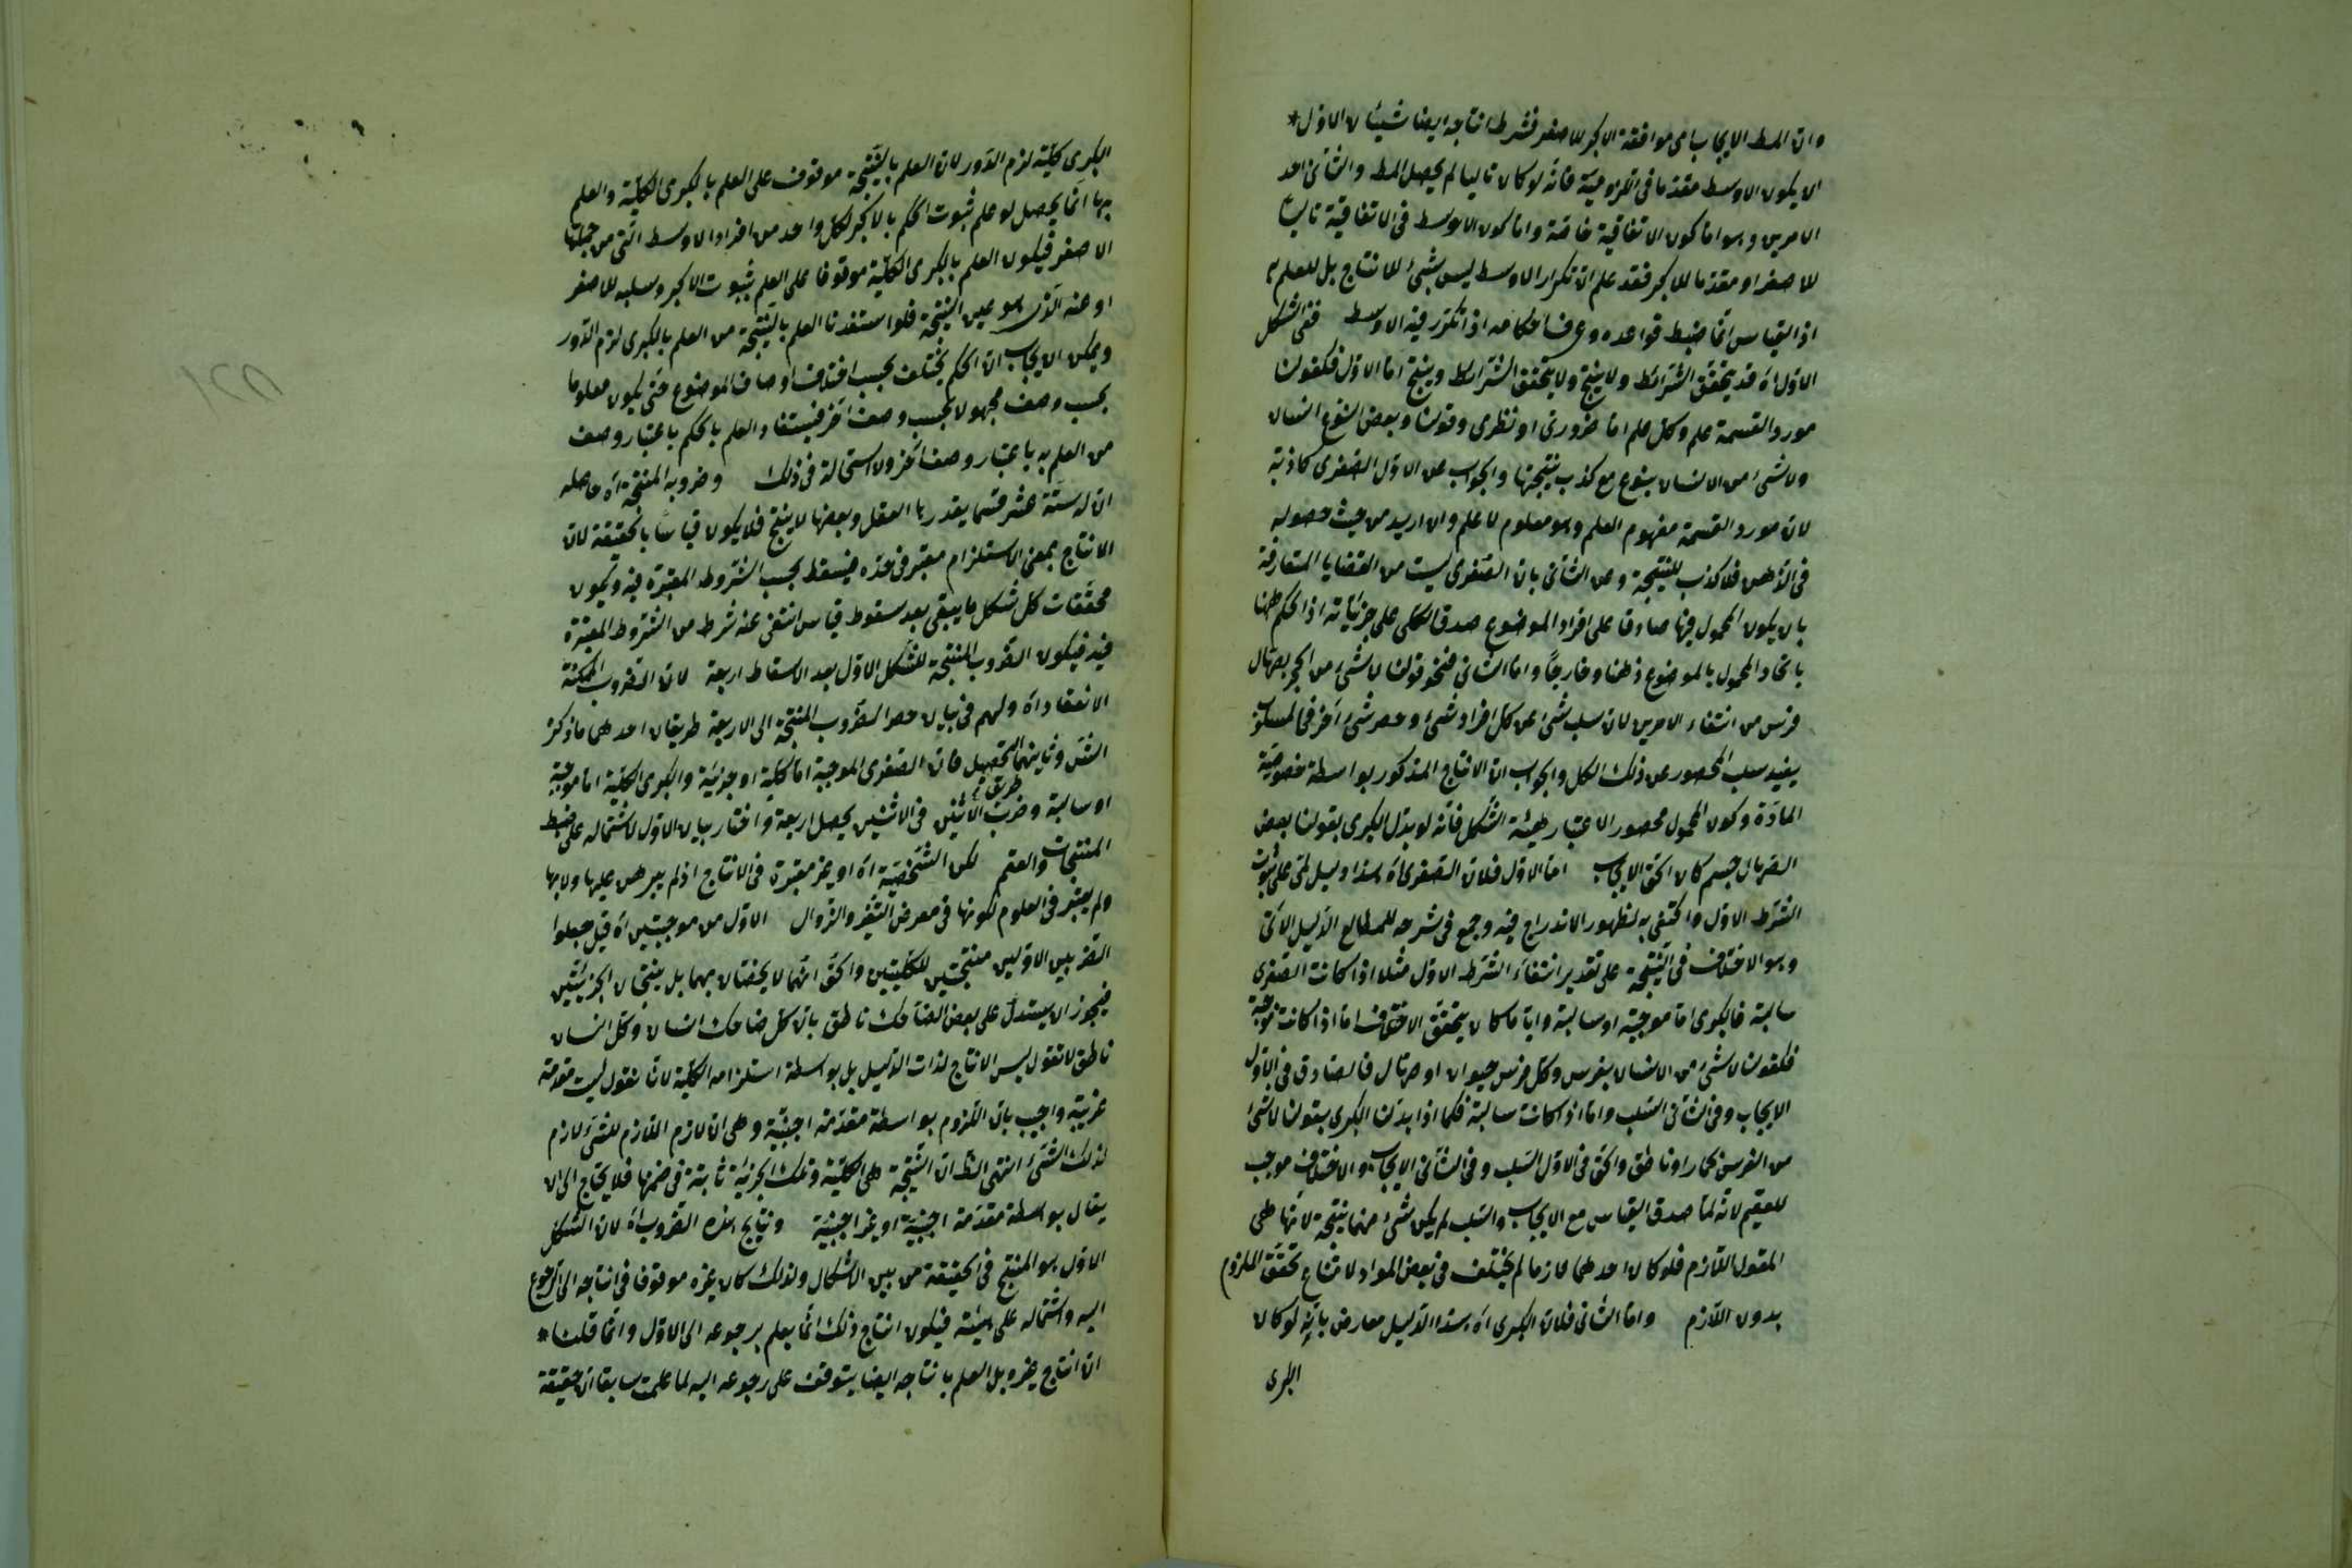 وان المط الايجاب اى موافقة الاكبر للاصغر فشرط انتاجه ايضا شيئان الاول*
ان يكون الاوسط مقدما فى اللزومية فانه لو كان تاليا لم يحصل المط والثانى احد
الامرين وهو اما كون الاتفاقية خاصة واما كون الاوسط فى الاتفاقية تاليا
للاصغر او مقدما للاكبر فقد علم ان تكرار الاوسط ليس بشئ للانتاج بل للعلم به
اذ القياس انما ضبط قواعده وعرف احكامه اذا تكرر فيه الاوسط ففى الشكل
الاول اه قد يتحقق الشرائط ولا ينتج ولا يتحقق الشرائط وينتج اما الاول فكقولنا
مورد القسمة علم وكل علم اما ضرورى او نظرى وقولنا وبعض النوع انسان
ولا شئ من الانسان بنوع مع كذب نتيجتها والجواب عن الاول الصغرى كاذبة
لان مورد القسمة مفهوم العلم وهو معلوم لا علم وان اريد من حيث حصوله
فى الذهن فلا كذب للنتيجة وعن الثانى بان الصغرى ليست من القضايا المتعارفة
بان يكون المحمول فيها صادقا على افراد الموضوع صدق الكلى على جزئياته اذ الحكم ههنا
باتحاد المحمول بالموضوع ذهنا وخارجا واما الثانى فنحو قولنا لا شئ من الحجر بصهال
فرس من انتفاء الامرين لان سلب شئ عن كل افراد شئ وحصر شئ آخر فى المسلوب
يفيد سلب المحصور عن ذلك الكل والجواب ان الانتاج المذكور بواسطة خصوصية
المادة وكون المحمول محصورا لا عتبار هيئة الشكل فانه لو بدل الكبرى بقولنا بعض
الصهال جسم كان الحق الايجاب اما الاول فلان الصغرى اه هذا دليل لمى على ثبوت
الشرط الاول واكتفى به لظهور الاندراج فيه وجمع فى شرحه للمطالع الدليل الانى
وهو الاختلاف فى النتيجة على تقدير انتفاء الشرط الاول مثلا اذا كانت الصغرى
سالبة فالكبرى اما موجبة او سالبة واياما كان يتحقق الاختلاف اما اذا كانت موجبة
فكقولنا لا شئ من الانسان بفرس وكل فرس حيوان او صهال فالصادق فى الاول
الايجاب وفى الثانى السلب واما اذا كانت سالبة فكما اذا بدلنا الكبرى بقولنا لا شئ
من الفرس بحمار او ناطق والحق فى الاول السلب وفى الثانى الايجاب والاختلاف موجب
للعقم لانه لما صدق القياس مع الايجاب والسلب لم يكن شئ منهما نتيجة لانها هى
المقول اللازم فلو كان احدهما لازما لم يختلف فى بعض المواد لامتناع تحقق الملزوم
بدون اللازم واما الثانى فلان الكبرى اه هذا الدليل معارض بانه لو كان
الكبرى
الكبرى كلية لزم الدور لان العلم بالنتيجة موقوف على العلم بالكبرى الكلية والعلم
بها انما يحصل لو علم ثبوت الحكم بالاكبر لكل واحد من افراد الاوسط التى من جملتها
الاصغر فيكون العلم بالكبرى الكلية موقوفا على العلم بثبوت الاكبر وسلبه للاصغر
او عنه الذى هو عين النتيجة فلو استفدنا العلم بالنتيجة من العلم بالكبرى لزم الدور
ويمكن ان يجاب ان الحكم يختلف بحسب اختلاف اوصاف الموضوع حتى يكون معلوما
بحسب وصف مجهولا بحسب وصف آخر فيستفاد العلم بالحكم باعتبار وصف
من العلم به باعتبار وصف آخر ولا استحالة فى ذلك وضروبه المنتجة اه حاصله
ان له ستة عشر قسما يقدرها العقل وبعضها لا ينتج فلا يكون قياسا بالحقيقة لان
الانتاج بمعنى الاستلزام معتبر فى حده فيسقط بحسب الشروط المعتبرة فيه ويكون
محققات كل شكل ما يبقى بعد سقوط قياس انتفى عنه شرط من الشروط المعتبرة
فيه فيكون الضروب المنتجة للشكل الاول بعد الاسقاط اربعة لان الضروب الممكنة
الانعقاد اه ولهم فى بيان حصر الضروب المنتجة الى الاربعة طريقان احدهما ما ذكره
الش وثانيهما طريق التحصيل فان الصغرى الموجبة اما كلية او جزئية والكبرى الكلية اما موجبة
او سالبة وضرب الاثنين فى الاثنين يحصل اربعة واختار بيان الاول لاشتماله على ضبط
المنتجات والعقم لكن الشخصية اه او غير معتبرة فى الانتاج اذ لم يبرهن عليها ولا بها
ولم يعتبر فى العلوم لكونها فى معرض التغير والزوال الاول من موجبتين اه قيل جعلوا
الضربين الاولين منتجتين للكليتين والحق انهما لا يختصان بهما بل ينتجان الجزئيتين
فيجوز ان يستدل على بعض الضاحك ناطق بان كل ضاحك انسان وكل انسان
ناطق لا نقول ليس الانتاج لذات الدليل بل بواسطة استلزامه الكلية لانا نقول ليست مقدمة
غريبة واجيب بان اللزوم بواسطة مقدمة اجنبية وهى ان لازم اللازم للشئ لازم
لذلك الشئ انتهى الظ ان النتيجة هى الكلية وتلك الجزئية ثابتة فى ضمنها فلا يحتاج الى ان
يقال بواسطة مقدمة اجنبية او غير اجنبية ونتايج هذه الضروب اه لان الشكل
الاول هو المنتج فى الحقيقة من بين الاشكال ولذلك كان غيره موقوفا فى انتاجه الى الرجوع
اليه واشتماله على هيئته فيكون انتاج ذلك انما يعلم برجوعه الى الاول وانما قلنا*
ان انتاج غيره بل العلم بانتاجه ايضا يتوقف على رجوعه اليه لما علمت سابقا ان حقيقة